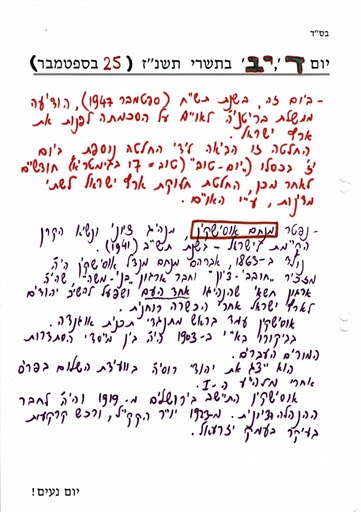 בס"ד
יום ד', יב' בתשרי תשנ"ז (25 בספטמבר)
- ביום זה, בשנת תש"ח (ספטמבר 1947), הודיעה
ממשלת בריטניה לאו"ם על הסכמתה לפנות את
ארץ ישראל.
החלטה זו הביאה לידי החלטה נוספת, ביום
י"ז בכסלו ("יום-טוב" (טוב = 17 בגימטריא) חודשיים
לאחר מכן, החלטת חלוקת ארץ ישראל לשתי
מדינות, ע"י האו"ם.
- נפטר מנחם אוסישקין, מנהיג ציוני ונשיא הקרן
הקיימת לישראל - בשנת תש"ב (1941).
נולד ב-1863, אברהם מנחם מנדל אוסישקין היה
מזכיר "חובבי-ציון" וחבר ארגון "בני-משה" שהיה
ארגון חשאי שהנהיגו אחד העם ושפעל להשיב יהודים
לארץ ישראל אחרי הכשרה רוחנית.
אוסישקין עמד בראש מתנגדי תכנית אוגנדה.
בביקורו בא"י ב-1903 היה בין מיסדי הסתדרות
המורים העברים.
הוא ייצג את יהודי רוסיה בוועידת השלום בפריס
אחרי מלה"ע ה-I.
אוסישקין התיישב בירושלים מ-1919 והיה לחבר
ההנהלה הציונית. מ-1923 יו"ר הקק"ל, ורכש קרקעות
בעיקר בעמק יזרעאל.
יום נעים!